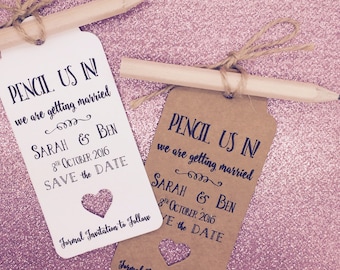 PENCIL US IN!
we are getting married
SARAH & BEN
8th OCTOBER 2016
SAVE the DATE
Formal Invitation to Follow
PENCIL US IN!
we are getting married
SARAH & BEN
8th OCTOBER 2016
SAVE the DATE
Formal Invitation to Follow